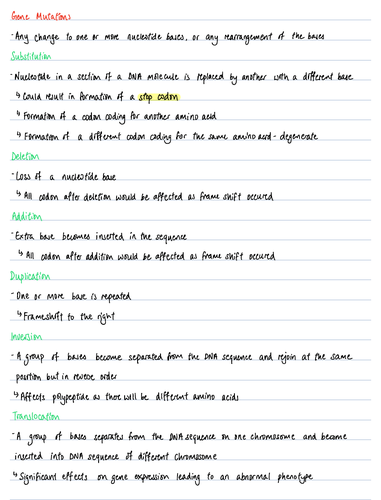 Gene Mutations
- Any change to one or more nucleotide bases, or any rearrangement of the bases
Substitution
- Nucleotide in a section of a DNA molecule is replaced by another with a different base
↳ Could result in formation of a stop codon
↳ Formation of a codon coding for another amino acid
↳ Formation of a different codon coding for the same amino acid - degenerate
Deletion
- Loss of a nucleotide base
↳ All codon after deletion would be affected as frame shift occured
Addition
- Extra base becomes inserted in the sequence
↳ All codon after addition would be affected as frame shift occured
Duplication
- One or more base is repeated
↳ Frameshift to the right
Inversion
- A group of bases become separated from the DNA sequence and rejoin at the same
position but in reverse order
↳ Affects polypeptide as there will be different amino acids
Translocation
- A group of bases separates from the DNA sequence on one chromosome and become
inserted into DNA sequence of different chromosome
↳ Significant effects on gene expression leading to an abnormal phenotype